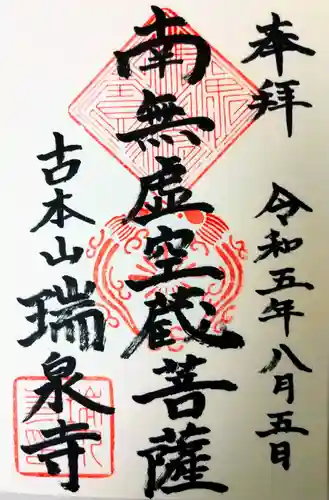 奉拝
令和五年八月五日
南無虚空蔵菩薩
古本山瑞泉寺